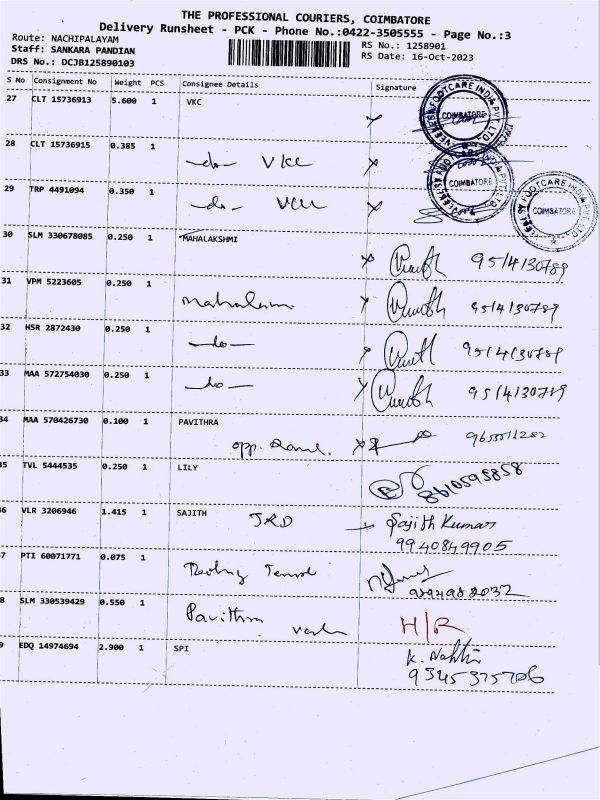 THE PROFESSIONAL COURIERS, COIMBATORE
Delivery Runsheet - PCK - Phone No.:0422-3505555 - Page No.:3
Route: NACHIPALAYAM RS No.: 1258901
Staff: SANKARA PANDIAN RS Date: 16-Oct-2023
DRS No.: DCJB125890103
S No Consignment No Weight PCS Consignee Details Signature
27 CLT 15736913 5.600 1 VKC
COIMBATORE
28 CLT 15736915 0.385 1
-do- VKC
COIMBATORE
29 TRP 4491094 0.350 1
-do- VKC
COIMBATORE
30 SLM 330678085 0.250 1 MAHALAKSHMI
31 VPM 5223605 0.250 1
32 HSR 2872430 0.250 1
-do-
33 MAA 572754030 0.250 1
-do-
34 MAA 570426730 0.100 1 PAVITHRA
opp.
35 TVL 5444535 0.250 1 LILY
8610595858
36 VLR 3206946 1.415 1 SAJITH
JRD Sajith Kumar
9940849905
37 PTI 60071771 0.075 1
9894982032
38 SLM 330539429 0.550 1
Pavithra H/R
39 EDQ 14974694 2.900 1 SPI
K.
9345375706